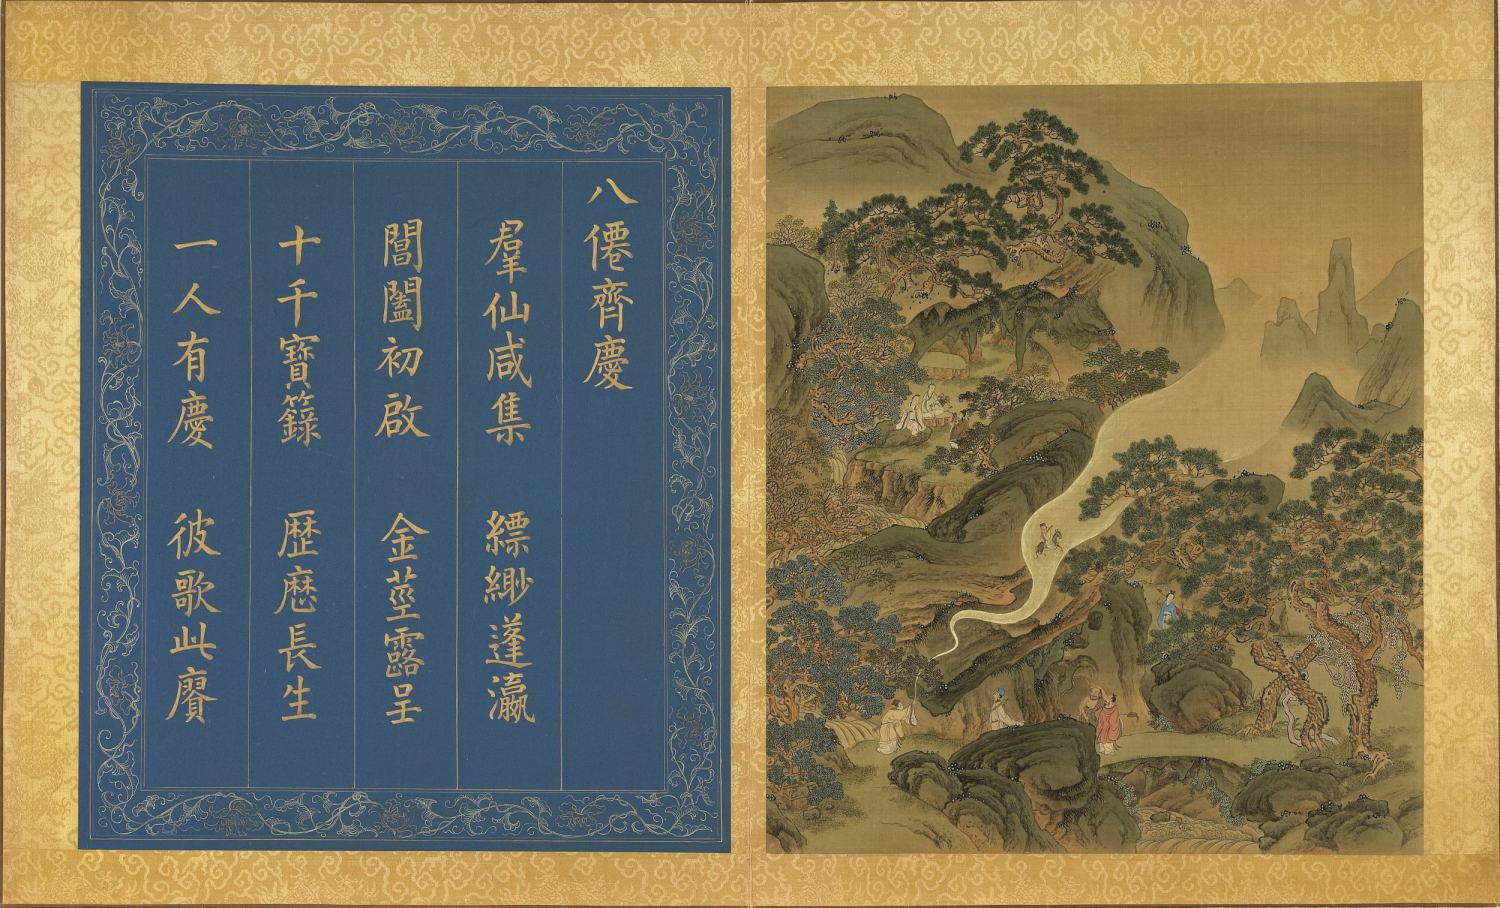 八僊齊慶
羣仙咸集 縹緲蓬瀛
閶闔初啟 金莖露呈
十千寶籙 歷歷長生
一人有慶 彼歌此賡